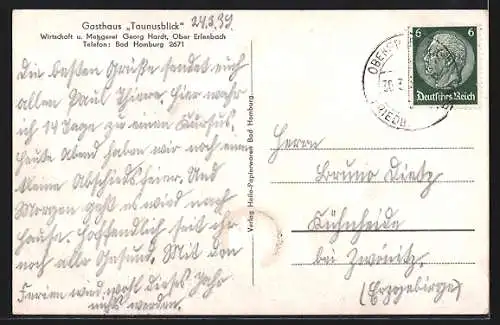 Gasthaus „Taunusblick“ 24.3.39.
Wirtschaft u. Metzgerei Georg Hardt, Ober Erlenbach
Telefon: Bad Homburg 2671
Die besten Grüße sendet euch
allen Paul Thiere. Hier war
ich 14 Tage zu einen Kursus.
Heute Abend haben wir noch eine
kleine Abschiedsfeier. Und
Morgen geht es wird nach
Hause. Hoffendlich seit ihr
noch alle Gesund. Mit den
Ferien wird wohl dieses Jahr
nichts werden.
Verlag Helle-Papierwaren Bad Homburg
6 6
Deutsches Reich
FRIEDB
Herrn
Bruno Dietz
Kühnheide
bei Zwönitz
(Erzgebirge)